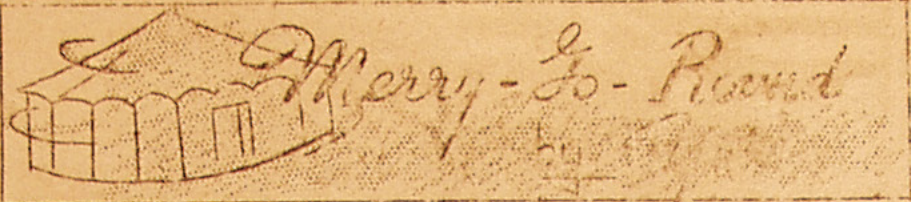 Merry-Go-Round
by